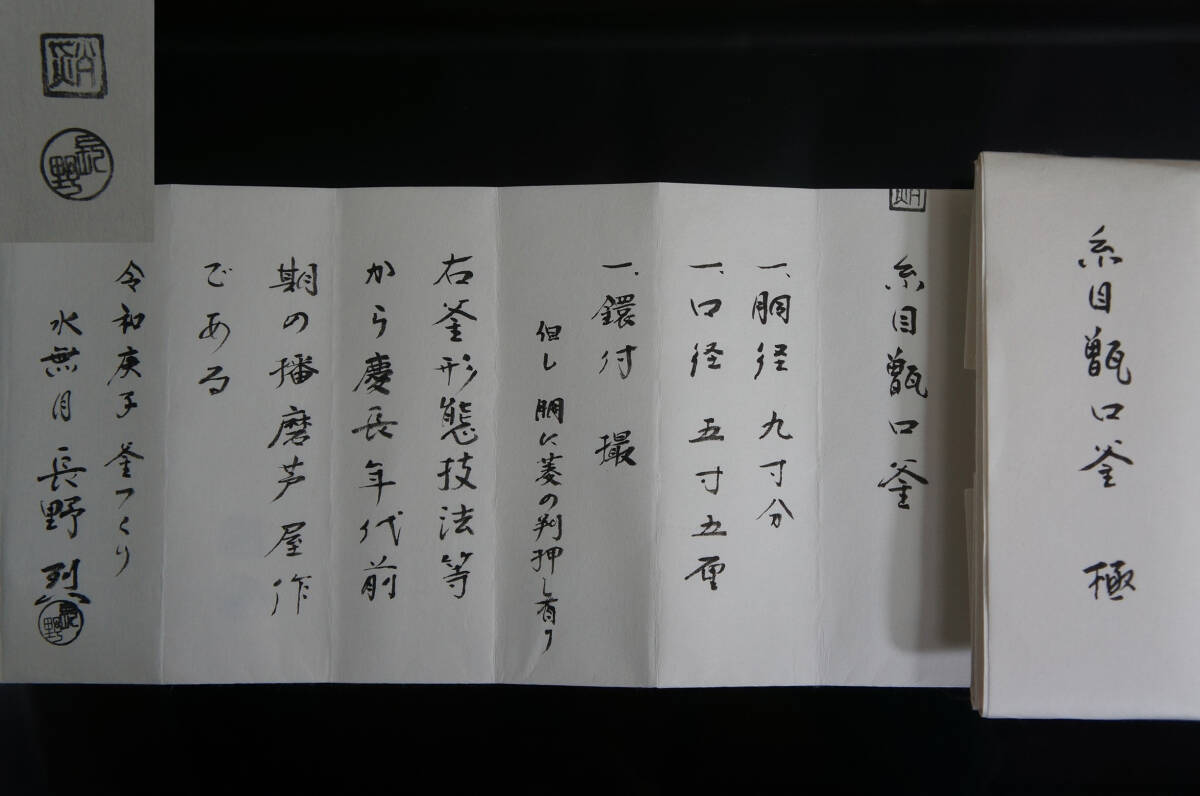 糸目甑口釜 極
糸目甑口釜
一、胴径 九寸分
一、口径 五寸五厘
一、鐶付 撮
但し 胴に菱の判押し有り
右釜形態技法等
から慶長年代前
期の播磨芦屋作
である
令和庚子 釜つくり
水無月 長野 烈
長野
長野